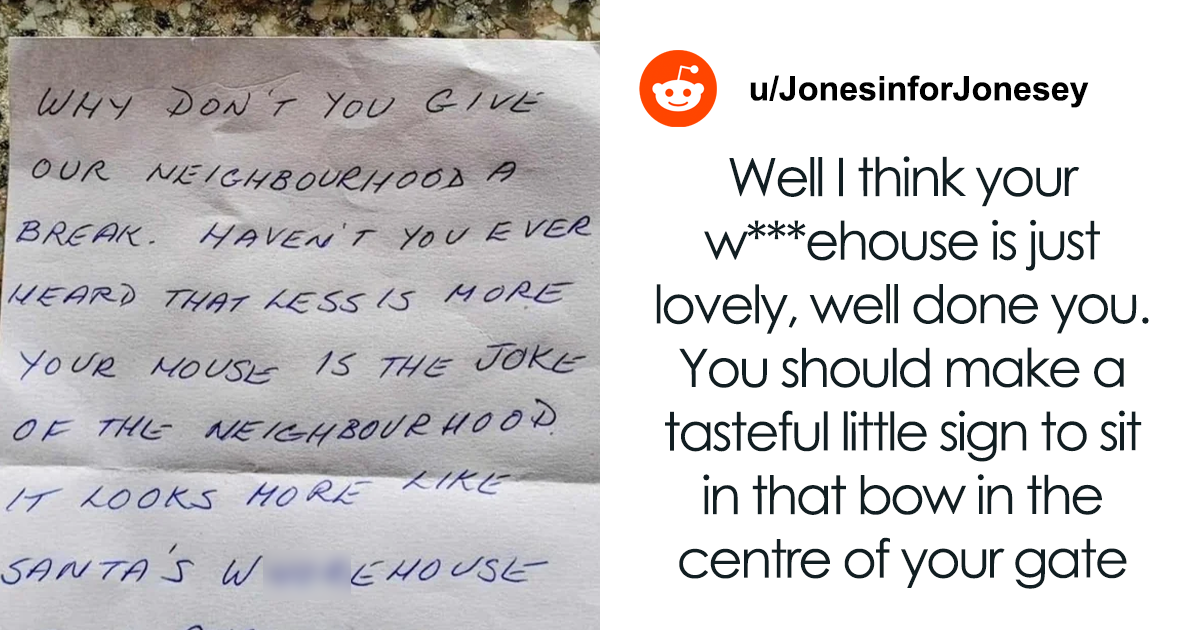 WHY DON'T YOU GIVE
OUR NEIGHBOURHOOD A
BREAK. HAVEN'T YOU EVER
HEARD THAT LESS IS MORE
YOUR HOUSE IS THE JOKE
OF THE NEIGHBOURHOOD.
IT LOOKS MORE LIKE
SANTA'S W EHOUSE
u/JonesinforJonesey
Well I think your
w***ehouse is just
lovely, well done you.
You should make a
tasteful little sign to sit
in that bow in the
centre of your gate